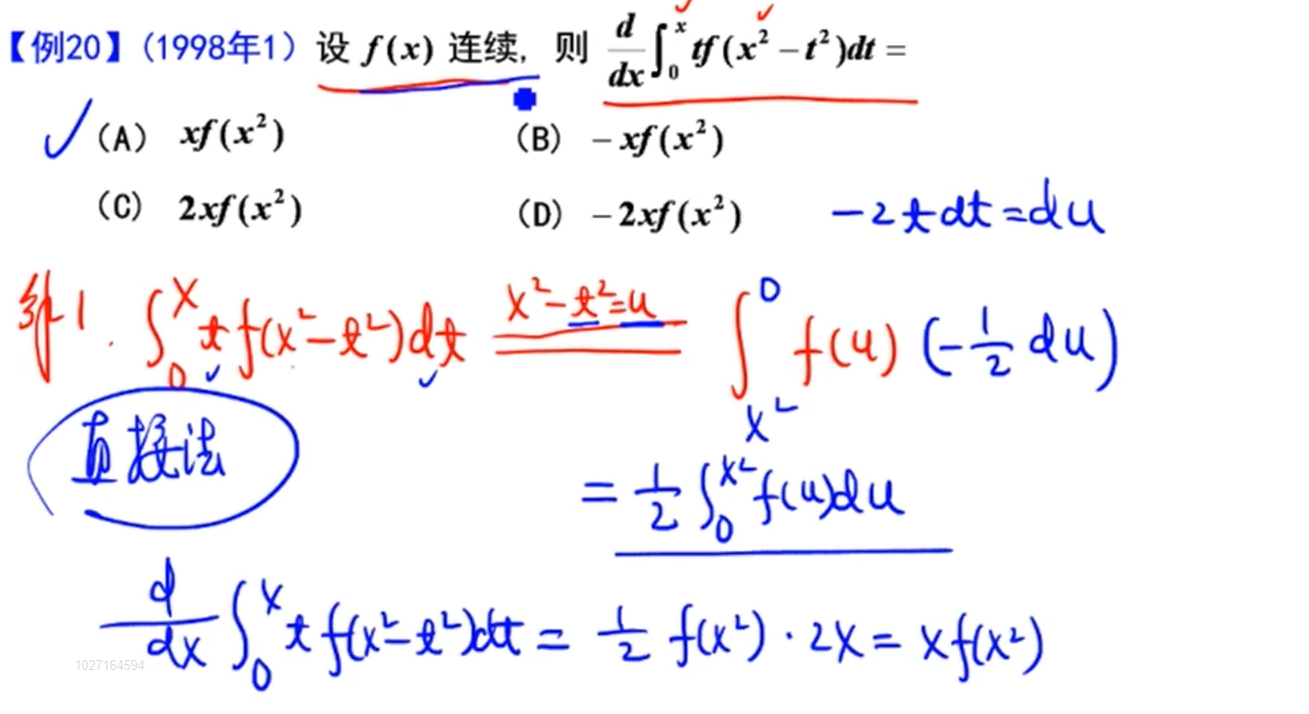 【例20】(1998年1) 设 f(x) 连续, 则 d/dx ∫₀ˣ tf(x²−t²)dt =
(A) xf(x²) (B) −xf(x²)
(C) 2xf(x²) (D) −2xf(x²) −2tdt=du
1. ∫₀ˣ tf(x²−t²)dt x²−t²=u ∫_{x²}^{0} f(u) (−1/2 du)
直接法
= 1/2 ∫₀^{x²} f(u)du
d/dx ∫₀ˣ t f(x²−t²)dt = 1/2 f(x²)·2x = xf(x²)
1027164594